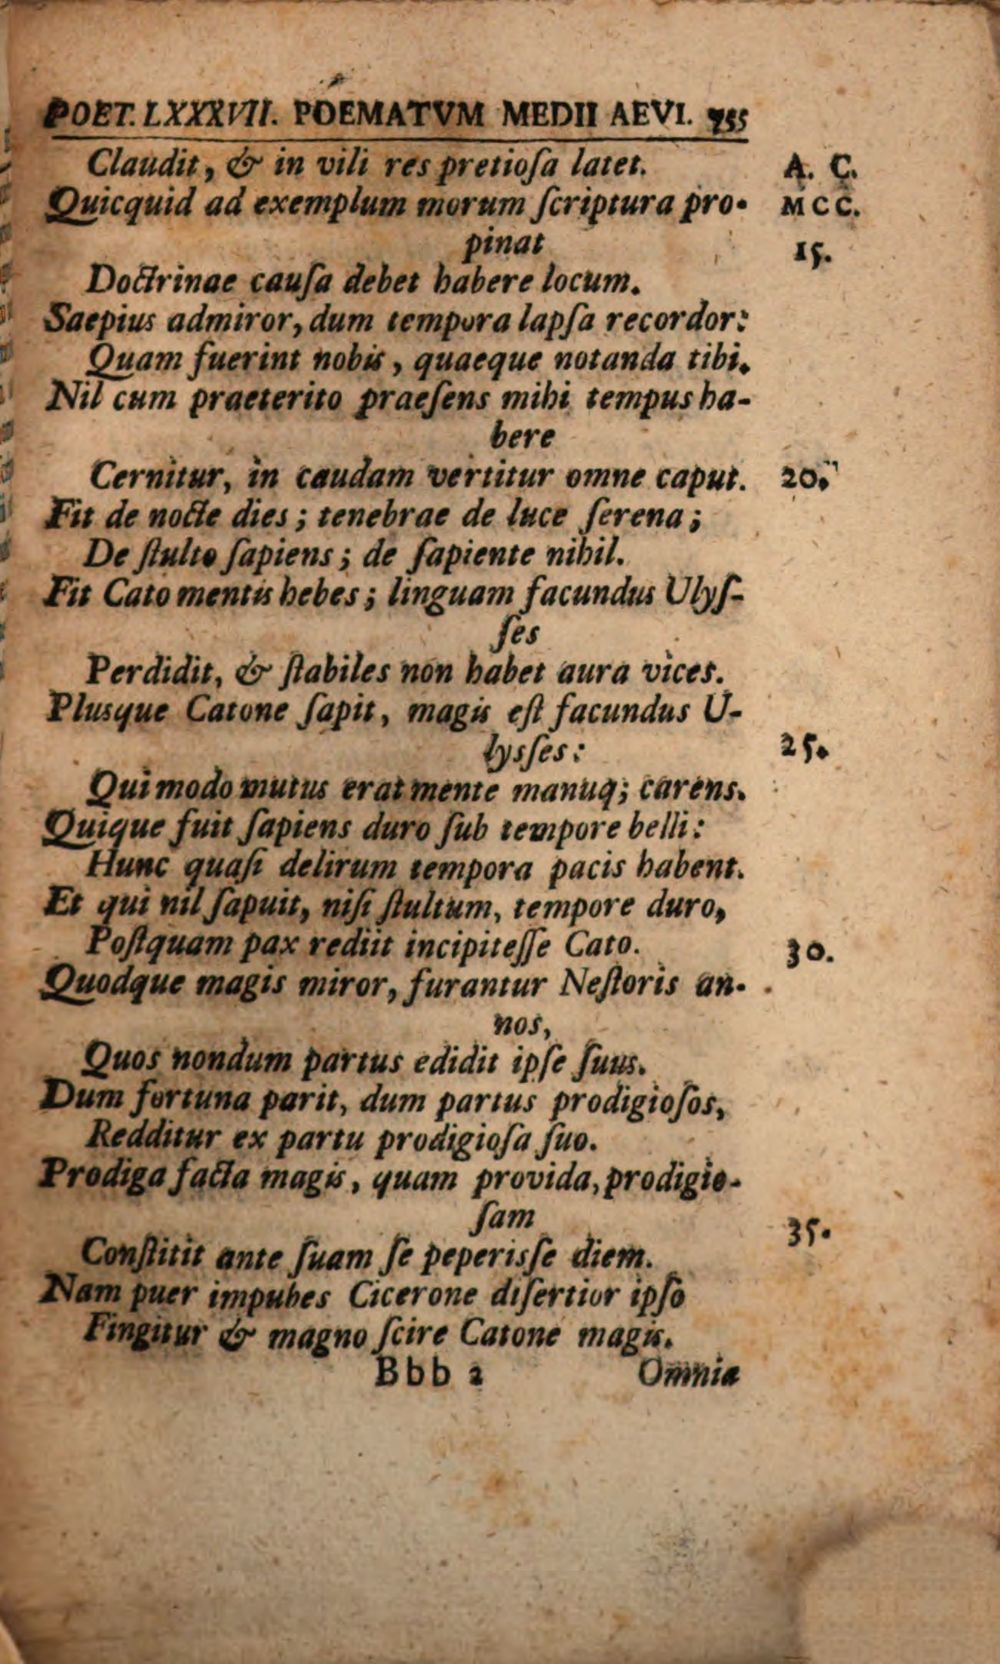 POET. LXXXVII. POEMATVM MEDII AEVI. 755
Claudit, & in vili res pretioſa latet. A. C.
Quicquid ad exemplum morum ſcriptura pro- MCC.
pinat 15.
Doctrinae cauſa debet habere locum.
Saepius admiror, dum tempora lapſa recordor:
Quam fuerint nobis, quaeque notanda tibi.
Nil cum praeterito praeſens mihi tempus ha-
bere
Cernitur, in caudam vertitur omne caput. 20.
Fit de nocte dies; tenebrae de luce ſerena;
De ſtulto ſapiens; de ſapiente nihil.
Fit Cato mentis hebes; linguam facundus Ulyſ-
ſes
Perdidit, & ſtabiles non habet aura vices.
Plusque Catone ſapit, magis eſt facundus U-
lysſes: 25.
Qui modo mutus erat mente manuq; carens.
Quique fuit ſapiens duro ſub tempore belli:
Hunc quaſi delirum tempora pacis habent.
Et qui nil ſapuit, niſi ſtultum, tempore duro,
Poſtquam pax rediit incipit eſſe Cato. 30.
Quodque magis miror, furantur Neſtoris an-
nos,
Quos nondum partus edidit ipſe ſuus.
Dum fortuna parit, dum partus prodigioſos,
Redditur ex partu prodigioſa ſuo.
Prodiga facta magis, quam provida, prodigio-
ſam 35.
Conſtitit ante ſuam ſe peperisſe diem.
Nam puer impubes Cicerone diſertior ipſo
Fingitur & magno ſcire Catone magis.
Bbb 2 Omnia